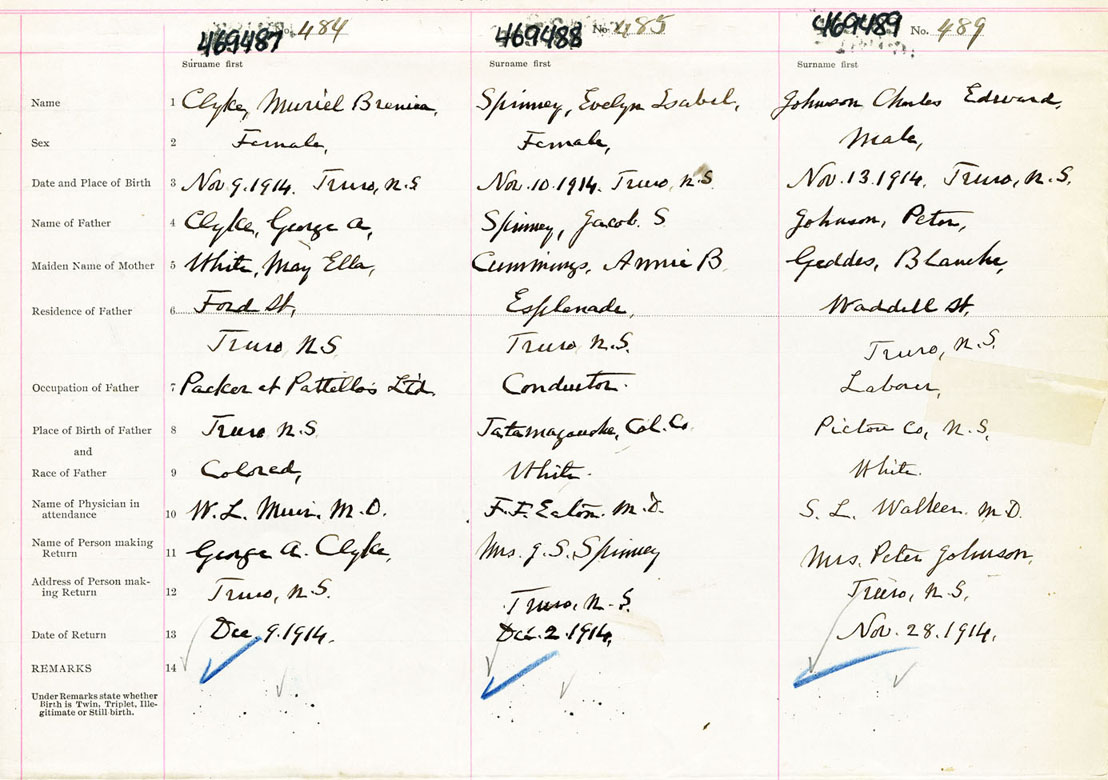 469487 No. 484 469488 No. 485 469489 No. 489
Surname first Surname first Surname first
Name 1 Clyke, Muriel Brenica, Spinney, Evelyn Isabel, Johnson Charles Edward,
Sex 2 Female, Female, Male,
Date and Place of Birth 3 Nov 9. 1914. Truro, N.S Nov. 10. 1914. Truro, N.S. Nov. 13. 1914. Truro, N.S.
Name of Father 4 Clyke, George A, Spinney, Jacob. S Johnson, Peter,
Maiden Name of Mother 5 White, May Ella, Cummings, Annie B. Geddes, Blanche,
Residence of Father 6 Ford St, Esplanade, Waddell St,
Truro N.S. Truro, N.S. Truro, N.S.
Occupation of Father 7 Packer at Pattello's Ltd. Conductor. Laborer,
Place of Birth of Father 8 Truro N.S. Tatamagouche, Col. Co. Pictou Co, N.S.
and
Race of Father 9 Colored, White. White.
Name of Physician in
attendance 10 W. L. Muir. M.D. F. F. Eaton. M.D. S. L. Walker. M.D.
Name of Person making
Return 11 George A. Clyke, Mrs. J. S. Spinney Mrs. Peter Johnson,
Address of Person mak-
ing Return 12 Truro, N.S. Truro, N.S. Truro, N.S.
Date of Return 13 Dec 9. 1914. Dec. 2. 1914, Nov. 28. 1914.
REMARKS 14
Under Remarks state whether
Birth is Twin, Triplet, Ille-
gitimate or Still-birth.